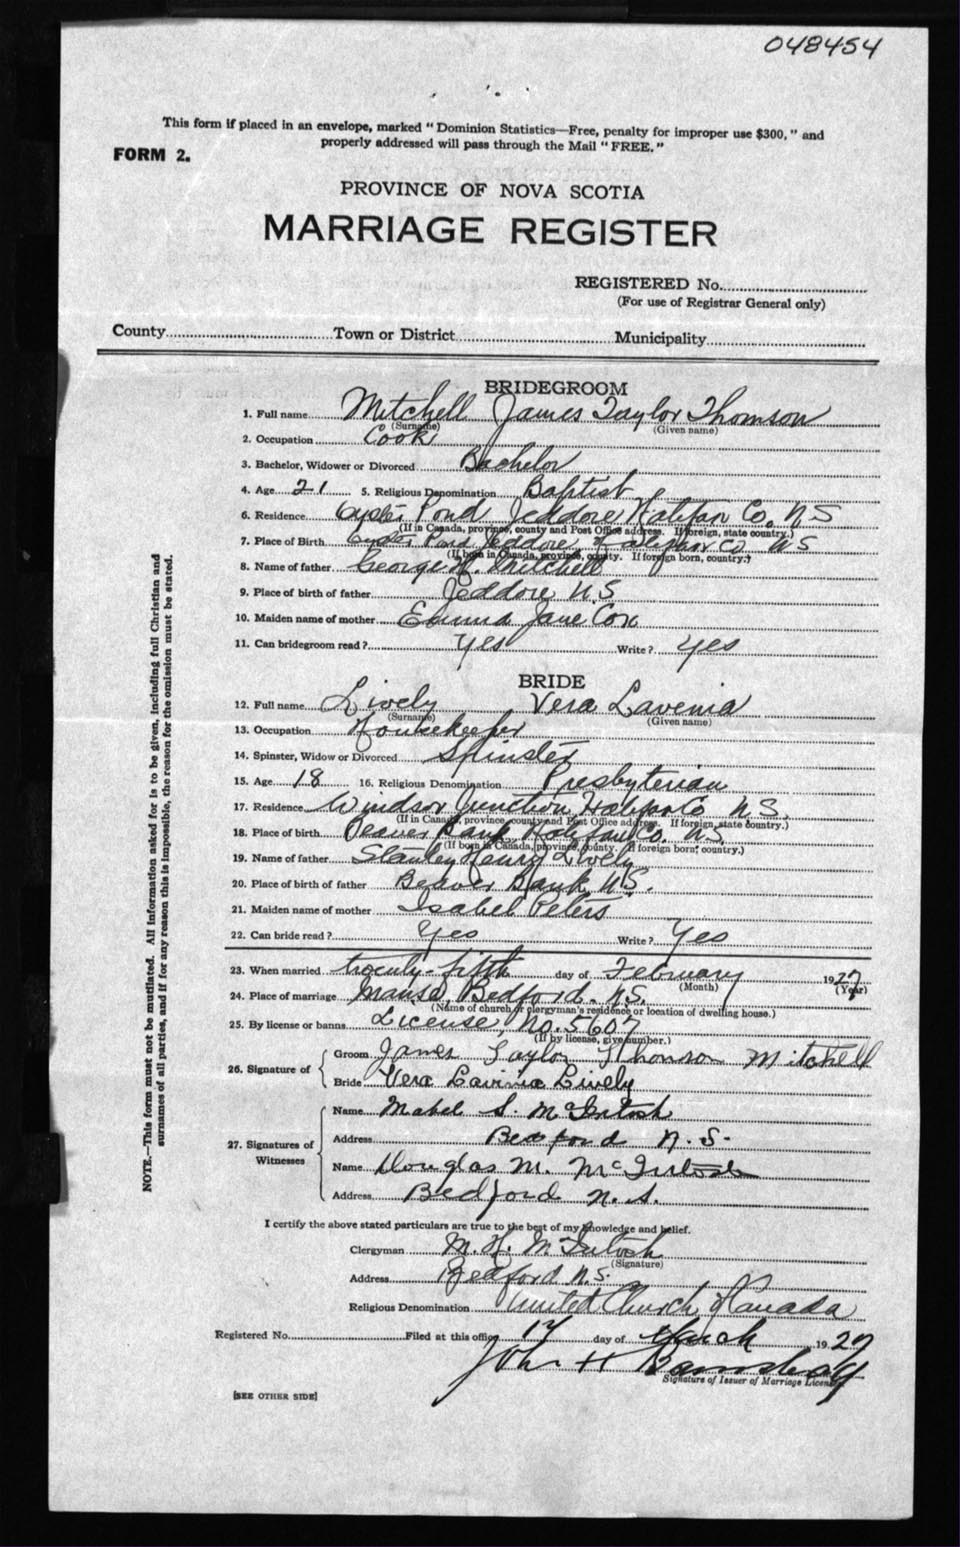 048454
This form if placed in an envelope, marked "Dominion Statistics—Free, penalty for improper use $300," and
properly addressed will pass through the Mail "FREE."
FORM 2.
PROVINCE OF NOVA SCOTIA
MARRIAGE REGISTER
REGISTERED No.
(For use of Registrar General only)
County Town or District Municipality
BRIDEGROOM
1. Full name Mitchell James Taylor Thomson
(Surname) (Given name)
2. Occupation Cook
3. Bachelor, Widower or Divorced Bachelor
4. Age 21 5. Religious Denomination Baptist
6. Residence Oyster Pond Jeddore Halifax Co. NS
(If in Canada, province, county and Post Office address. If foreign, state country.)
7. Place of Birth Oyster Pond Jeddore Halifax Co NS
(If born in Canada, province, county. If foreign born, country.)
8. Name of father George H. Mitchell
9. Place of birth of father Jeddore N.S
10. Maiden name of mother Emma Jane Cox
11. Can bridegroom read? Yes Write? Yes
BRIDE
12. Full name Lively Vera Lavenia
(Surname) (Given name)
13. Occupation Housekeeper
14. Spinster, Widow or Divorced Spinster
15. Age 18 16. Religious Denomination Presbyterian
17. Residence Windsor Junction Halifax Co N.S.
(If in Canada, province, county and Post Office address. If foreign, state country.)
18. Place of birth Beaver Bank Halifax Co. N.S.
(If born in Canada, province, county. If foreign born, country.)
19. Name of father Stanley Henry Lively
20. Place of birth of father Beaver Bank N.S.
21. Maiden name of mother Isabel Peters
22. Can bride read? Yes Write? Yes
23. When married twenty-fifth day of February 1927
(Month) (Year)
24. Place of marriage Manse, Bedford. N.S.
(Name of church or clergyman's residence or location of dwelling house.)
25. By license or banns License, No. 5607
(If by license, give number.)
26. Signature of
Groom James Taylor Thomson Mitchell
Bride Vera Lavinia Lively
27. Signatures of Witnesses
Name Mabel S. McIntosh
Address Bedford N.S.
Name Douglas M. McIntosh
Address Bedford N.S.
I certify the above stated particulars are true to the best of my knowledge and belief.
Clergyman M. H. McIntosh
(Signature)
Address Bedford N.S.
Religious Denomination United Church of Canada
Registered No. Filed at this office 17 day of March 1927
John H
Signature of Issuer of Marriage License
[SEE OTHER SIDE]
NOTE.—This form must not be mutilated. All information asked for is to be given, including full Christian and
surnames of all parties, and if for any reason this is impossible, the reason for the omission must be stated.